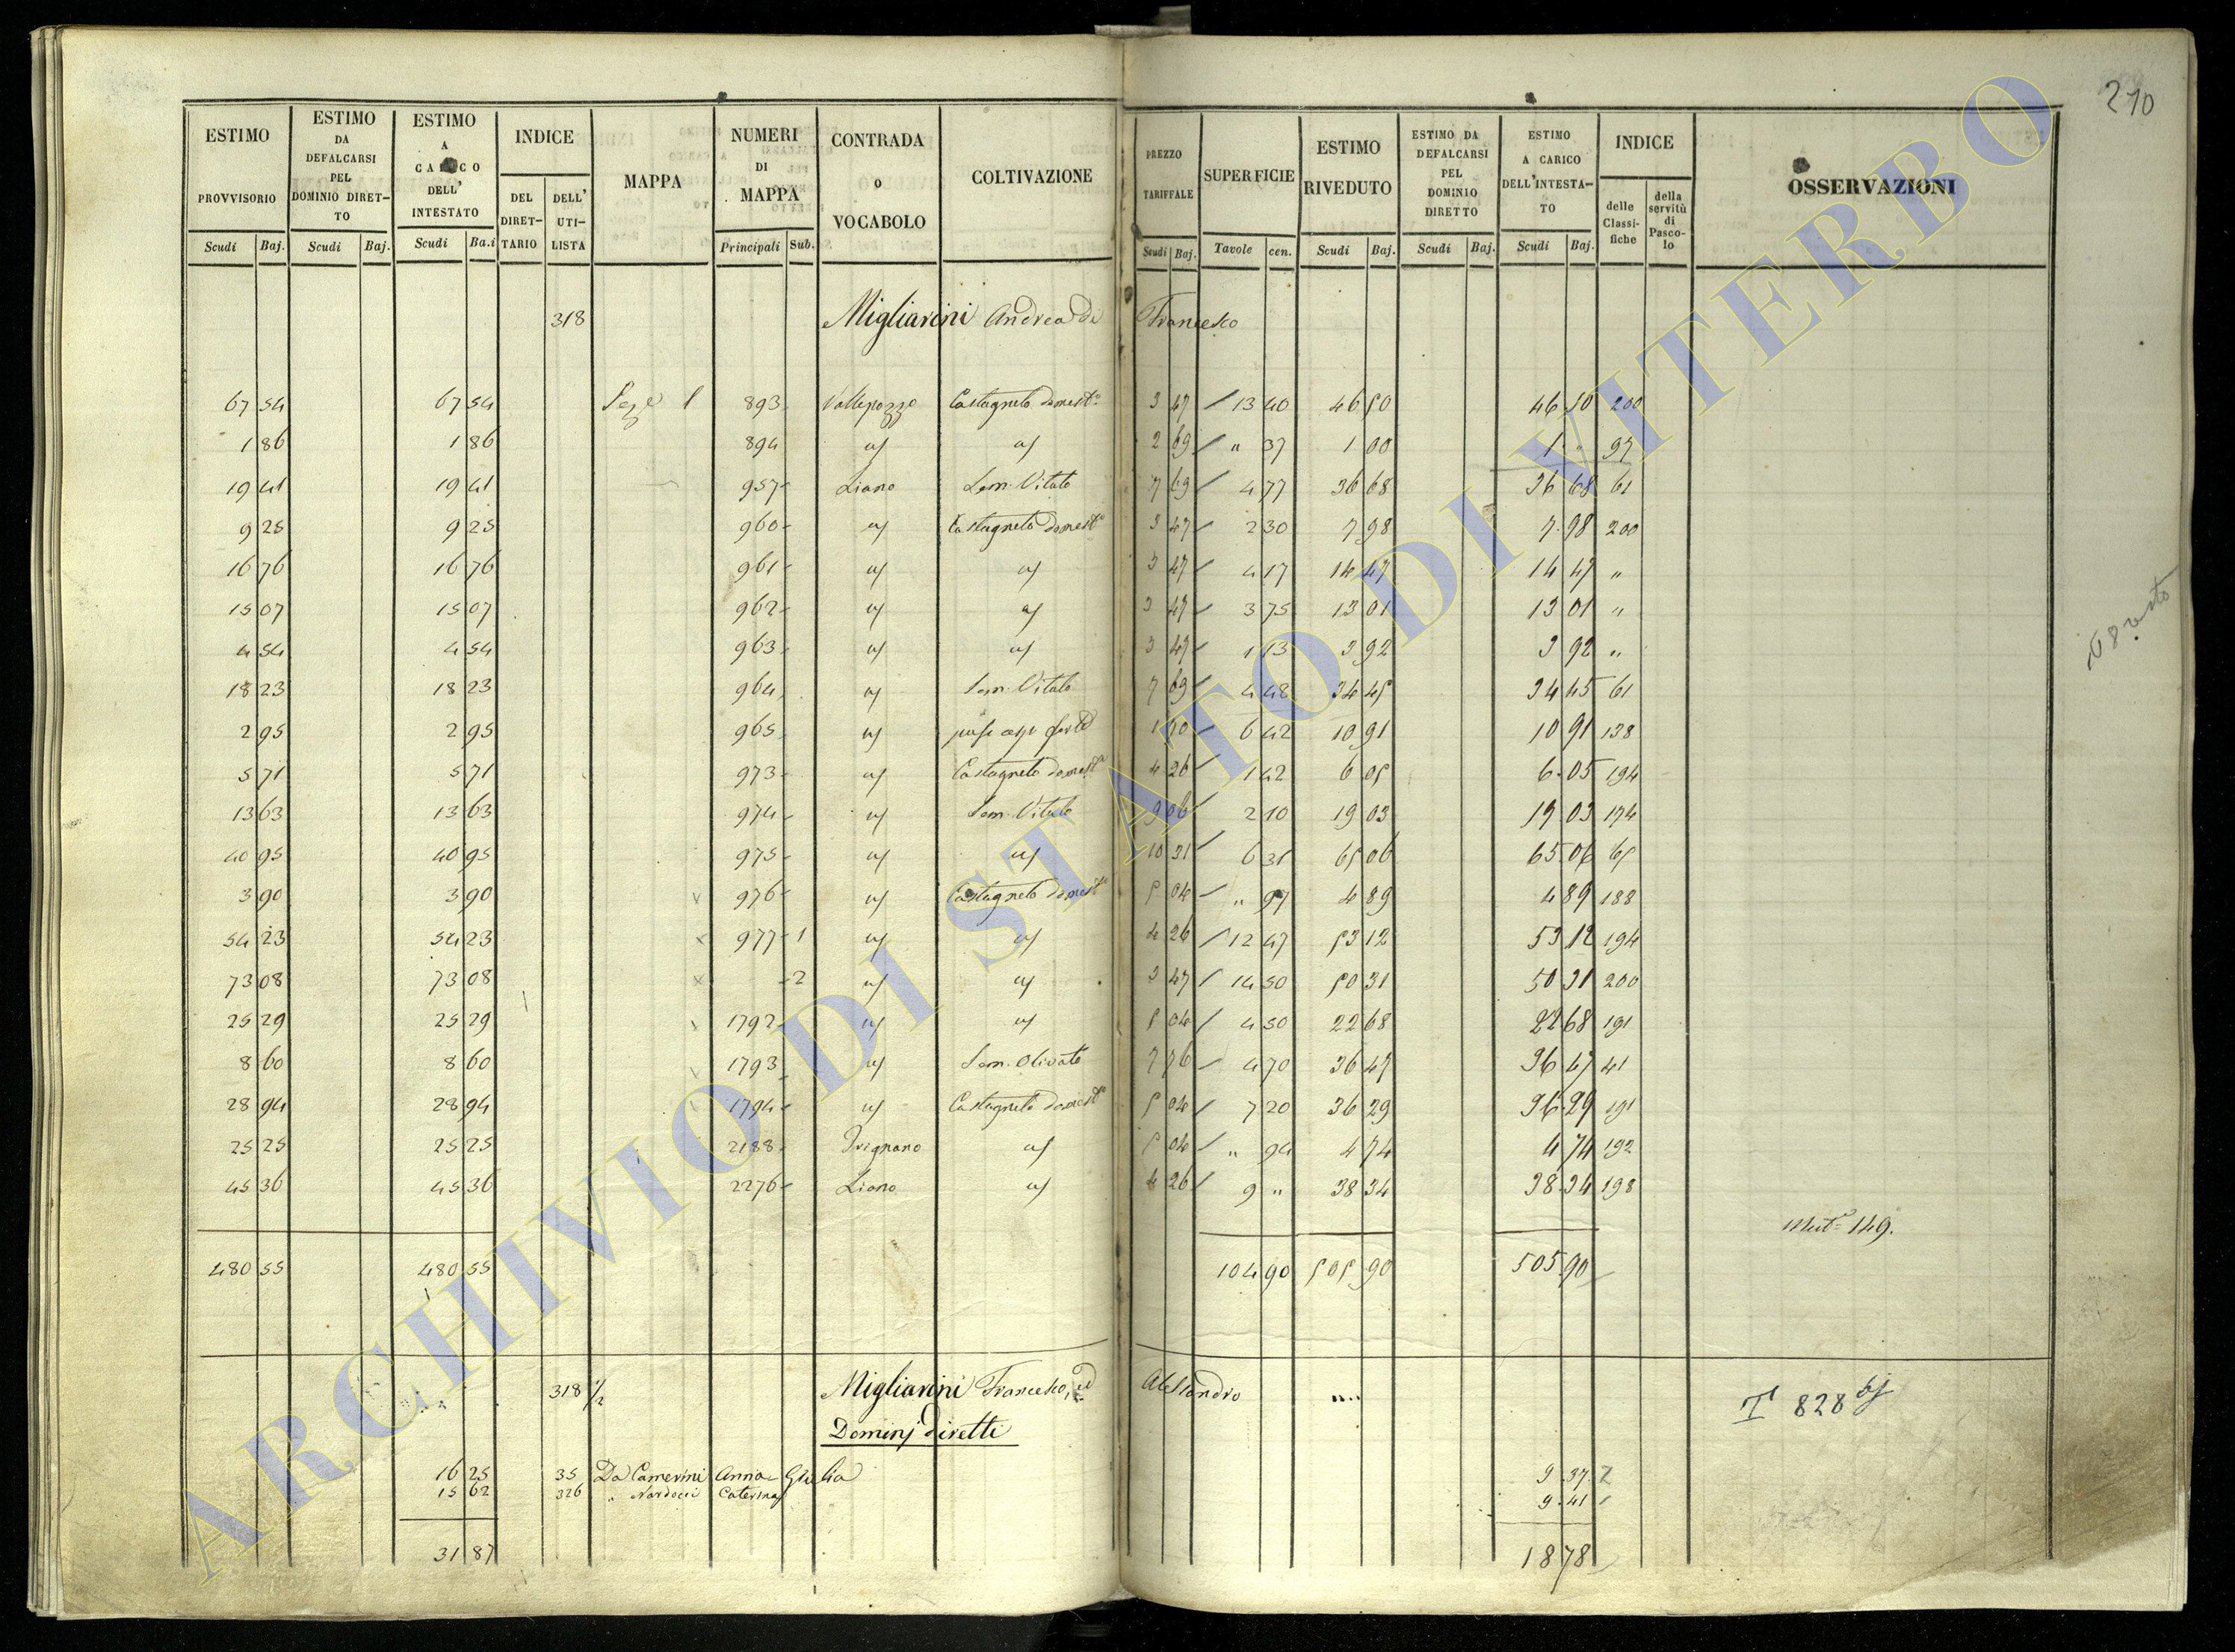 210
ESTIMO PROVVISORIO Scudi Baj.
ESTIMO DA DEFALCARSI PEL DOMINIO DIRET-TO Scudi Baj.
ESTIMO A CARICO DELL' INTESTATO Scudi Ba.i
INDICE DEL DIRET-TARIO DELL' UTI-LISTA
MAPPA
NUMERI DI MAPPA Principali Sub.
CONTRADA O VOCABOLO
COLTIVAZIONE
PREZZO TARIFFALE Scudi Baj.
SUPERFICIE Tavole cen.
ESTIMO RIVEDUTO Scudi Baj.
ESTIMO DA DEFALCARSI PEL DOMINIO DIRETTO Scudi Baj.
ESTIMO A CARICO DELL'INTESTA-TO Scudi Baj.
INDICE delle Classi-fiche della servitù di Pasco-lo
OSSERVAZIONI
318 Migliarini Andrea di Francesco
67 54 67 54 1 893 Vallepozzo Castagneto domest.o 3 47 13 40 46 50 46 50 200
1 86 1 86 894 " " 2 69 " 37 1 00 1 " 97
19 41 19 41 957 Liano Sem. Vitato 7 69 4 77 36 68 36 68 61
9 25 9 25 960 " Castagneto domest.o 3 47 2 30 7 98 7 98 200
16 76 16 76 961 " " 3 47 4 17 14 47 14 47 "
15 07 15 07 962 " " 3 47 3 75 13 01 13 01 "
4 54 4 54 963 " " 3 47 1 13 3 92 3 92 "
18 23 18 23 964 " Sem. Vitato 7 69 4 48 34 45 34 45 61
2 95 2 95 965 " 1 70 6 42 10 91 10 91 138
5 71 5 71 973 " Castagneto domest.o 4 26 1 42 6 05 6 05 194
13 63 13 63 974 " Sem. Vitato 9 06 2 10 19 03 19 03 174
40 95 40 95 975 " " 10 31 6 31 65 06 65 06 65
3 90 3 90 976 " Castagneto domest.o 5 04 " 97 4 89 4 89 188
54 23 54 23 977 1 " " 4 26 12 47 53 12 53 12 194
73 08 73 08 2 " " 3 47 14 50 50 31 50 31 200
25 29 25 29 1792 " " 5 04 4 50 22 68 22 68 191
8 60 8 60 1793 " Sem. Olivato 7 76 4 70 36 47 36 47 41
28 94 28 94 1794 " Castagneto domest.o 5 04 7 20 36 29 36 29 191
25 25 25 25 2188 Trignano " 5 04 " 94 4 74 4 74 192
45 36 45 36 2276 Liano " 4 26 9 " 38 34 38 34 198
Mut.e 149.
480 55 480 55 104 90 505 90 505 90
318 1/2 Migliarini Francesco, ed Alessandro
T 828
Dominj diretti
16 25 35 Da Camerini Anna Giulia 9 37 2
15 62 326 " Nardocci Caterina 9 41 1
31 87 18 78
ARCHIVIO DI STATO DI VITERBO